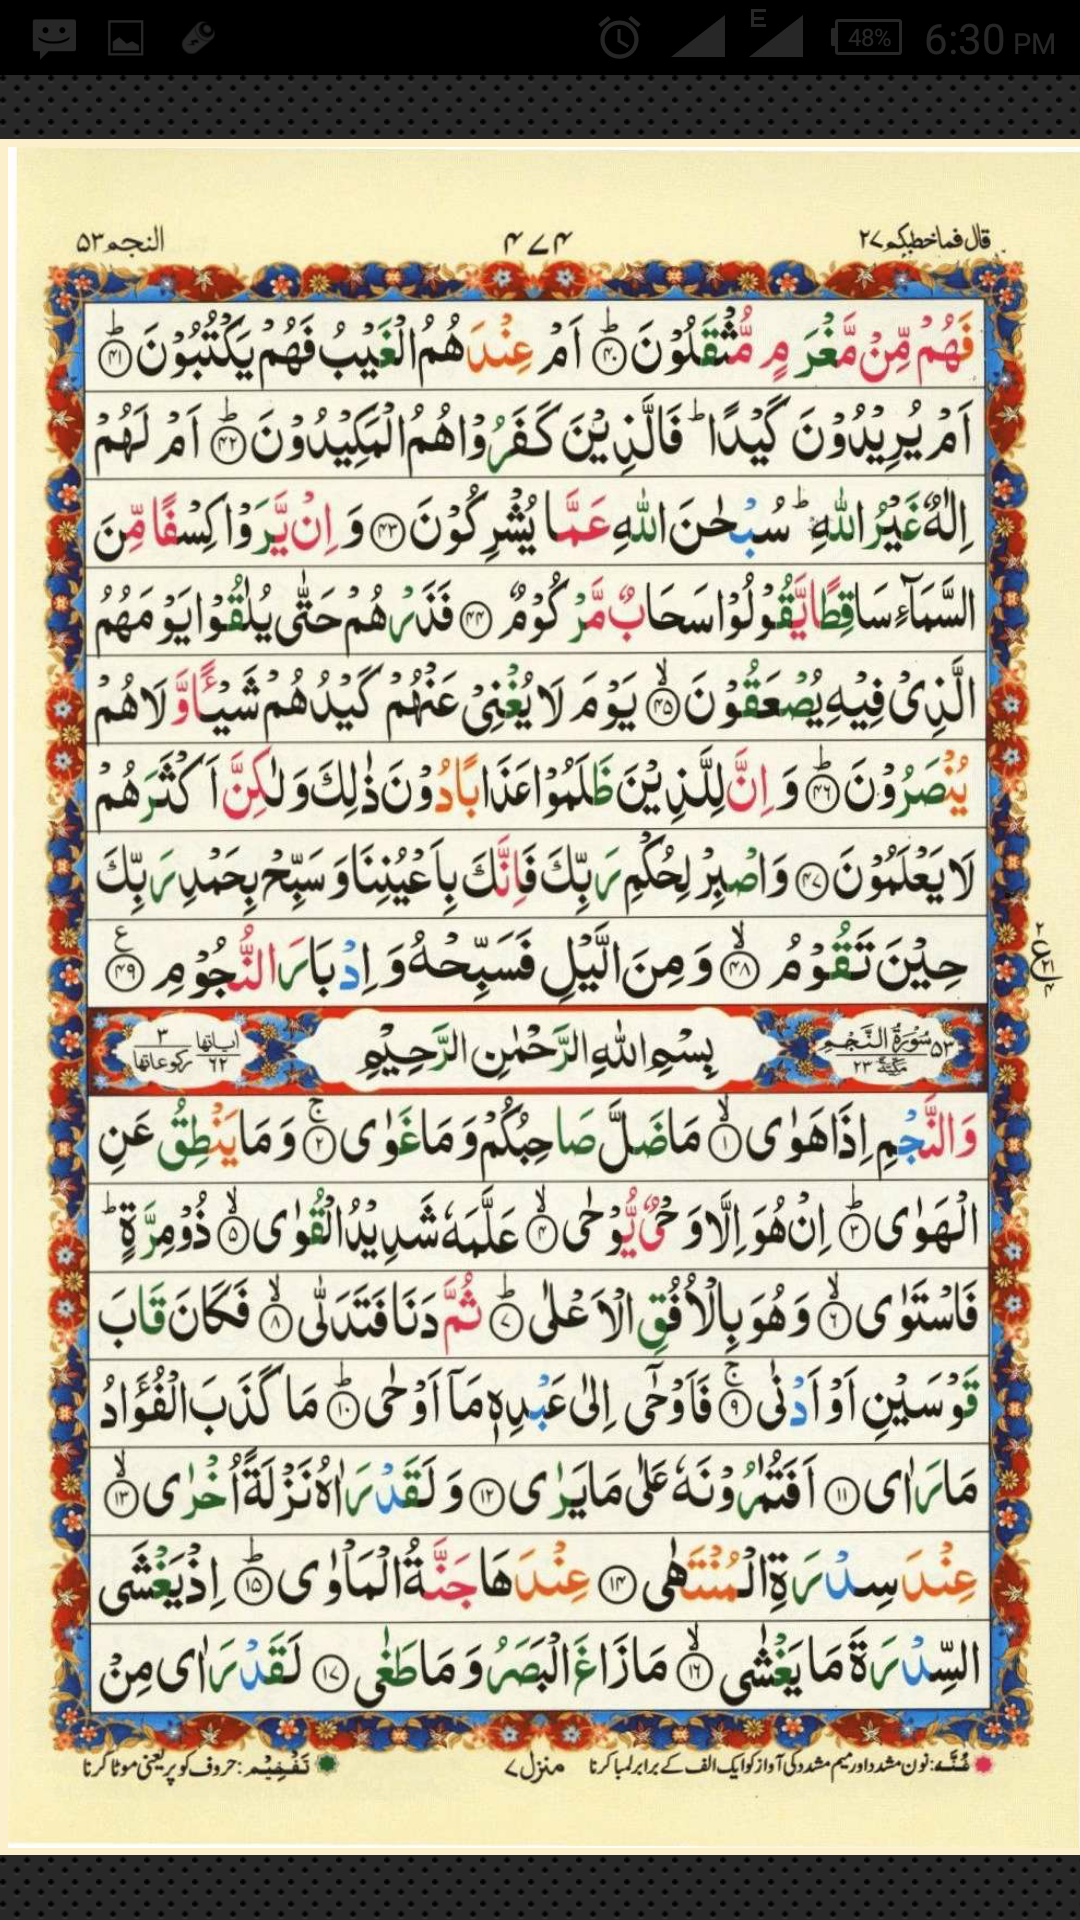 48%
E
6:30 PM
قال فما خطبكم ۲۷
۴۷۴
النجم ۵۳
فَهُمْ مِّنْ مَّغْرَمٍ مُّثْقَلُوْنَ ؕ‏﴿۴۰﴾ اَمْ عِنْدَهُمُ الْغَيْبُ فَهُمْ يَكْتُبُوْنَ ؕ‏﴿۴۱﴾
اَمْ يُرِيْدُوْنَ كَيْدًا ؕ فَالَّذِيْنَ كَفَرُوْا هُمُ الْمَكِيْدُوْنَ ؕ‏﴿۴۲﴾ اَمْ لَهُمْ
اِلٰهٌ غَيْرُ اللّٰهِ ؕ سُبْحٰنَ اللّٰهِ عَمَّا يُشْرِكُوْنَ ﴿۴۳﴾ وَ اِنْ يَّرَوْا كِسْفًا مِّنَ
السَّمَآءِ سَاقِطًا يَّقُوْلُوْا سَحَابٌ مَّرْكُوْمٌ ﴿۴۴﴾ فَذَرْهُمْ حَتّٰى يُلٰقُوْا يَوْمَهُمُ
الَّذِىْ فِيْهِ يُصْعَقُوْنَ ۙ‏﴿۴۵﴾ يَوْمَ لَا يُغْنِىْ عَنْهُمْ كَيْدُهُمْ شَيْـًٔا وَّلَا هُمْ
يُنْصَرُوْنَ ؕ‏﴿۴۶﴾ وَ اِنَّ لِلَّذِيْنَ ظَلَمُوْا عَذَابًا دُوْنَ ذٰلِكَ وَلٰكِنَّ اَكْثَرَهُمْ
لَا يَعْلَمُوْنَ ﴿۴۷﴾ وَاصْبِرْ لِحُكْمِ رَبِّكَ فَاِنَّكَ بِاَعْيُنِنَا وَسَبِّحْ بِحَمْدِ رَبِّكَ
حِيْنَ تَقُوْمُ ۙ‏﴿۴۸﴾ وَمِنَ الَّيْلِ فَسَبِّحْهُ وَاِدْبَارَ النُّجُوْمِ ﴿۴۹﴾ ع
۲ ع ۲۱ ۴
۵۳ سُوْرَةُ النَّجْمِ مَكِّيَّةٌ ۲۳
بِسْمِ اللّٰهِ الرَّحْمٰنِ الرَّحِيْمِ
اٰياتها ۶۲ ركوعاتها ۳
وَالنَّجْمِ اِذَا هَوٰى ۙ‏﴿۱﴾ مَا ضَلَّ صَاحِبُكُمْ وَمَا غَوٰى ۚ‏﴿۲﴾ وَمَا يَنْطِقُ عَنِ
الْهَوٰى ؕ‏﴿۳﴾ اِنْ هُوَ اِلَّا وَحْىٌ يُّوْحٰى ۙ‏﴿۴﴾ عَلَّمَهٗ شَدِيْدُ الْقُوٰى ۙ‏﴿۵﴾ ذُوْ مِرَّةٍ ؕ
فَاسْتَوٰى ۙ‏﴿۶﴾ وَهُوَ بِالْاُفُقِ الْاَعْلٰى ؕ‏﴿۷﴾ ثُمَّ دَنَا فَتَدَلّٰى ۙ‏﴿۸﴾ فَكَانَ قَابَ
قَوْسَيْنِ اَوْ اَدْنٰى ۚ‏﴿۹﴾ فَاَوْحٰٓى اِلٰى عَبْدِهٖ مَآ اَوْحٰى ؕ‏﴿۱۰﴾ مَا كَذَبَ الْفُؤَادُ
مَا رَاٰى ﴿۱۱﴾ اَفَتُمٰرُوْنَهٗ عَلٰى مَا يَرٰى ﴿۱۲﴾ وَلَقَدْ رَاٰهُ نَزْلَةً اُخْرٰى ۙ‏﴿۱۳﴾
عِنْدَ سِدْرَةِ الْمُنْتَهٰى ﴿۱۴﴾ عِنْدَهَا جَنَّةُ الْمَاْوٰى ؕ‏﴿۱۵﴾ اِذْ يَغْشَى
السِّدْرَةَ مَا يَغْشٰى ۙ‏﴿۱۶﴾ مَا زَاغَ الْبَصَرُ وَمَا طَغٰى ﴿۱۷﴾ لَقَدْ رَاٰى مِنْ
غُنَّه: نون مشدد اور میم مشدد کی آواز کو ایک الف کے برابر لمبا کرنا
منزل ۷
تَفْخِيْم: حروف کو پُر یعنی موٹا کرنا